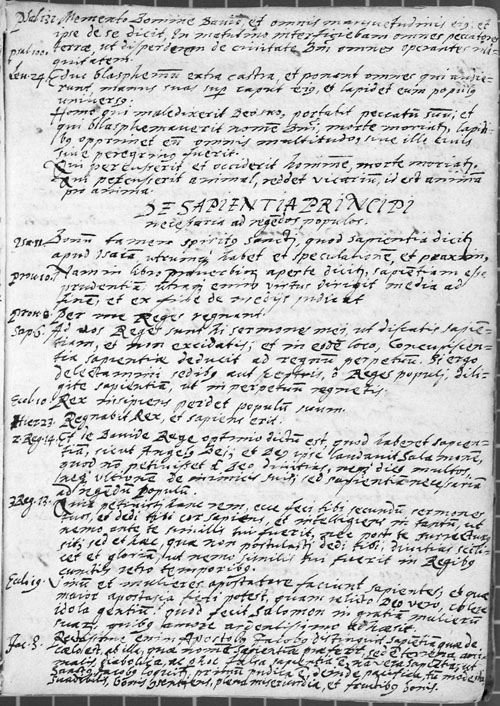 Psal. 131. Memento Domine David, et omnis mansuetudinis eius: et
ipse de se dicit, In matutino interficiebam omnes peccatores
psal. 100. terræ, ut disperderem de civitate Dni omnes operantes ini-
quitatem.
Leu. 24. Educ blasphemum extra castra, et ponant omnes qui audie-
runt, manus suas sup caput eius, et lapidet eum populus
universus:
Homo qui maledixerit Deo suo, portabit peccatu suu; et
qui blasphemaverit nome Dni, morte moriat, lapidi-
bus opprimet eu omnis multitudo, sive ille civis
sive peregrinus fuerit.
Qui percusserit et occiderit homine, morte moriat,
Qui percusserit animal, reddet vicariu, id est anima
pro anima.
DE SAPIENTIA PRINCIPI
necessaria ad regedos populos.
Isa. 11. Donu tamen spiritus sancti, quod sapientia dicit
apud Isaia, utrumque habet et speculatione, et praxim,
prou. 10. Nam in libro proverbior aperte dicit, sapientiam esse
prudentia, utram enim virtus dirigit media ad
fine, et ex fine de medijs judicat
prou. 8. Per me Reges regnant.
Sap. 6. Ad vos Reges sunt hi sermones mei, ut discatis sapien-
tiam, et non excidatis; et in eode loco, Concupiscen-
tia sapientiæ deducit ad regnu perpetuu. Si ergo
delectamini sedibus aut sceptris, o Reges populi, dili-
gite sapientiam, ut in perpetuu regnetis.
Eccli. 10. Rex insipiens perdet populu suum.
Hier. 23. Regnabit Rex, et sapiens erit.
2. Reg. 14. Et de Davide Rege optimo dictu est, quod haberet sapien-
tia, sicut Angelus Dei; et Deus ipse laudavit Salomone,
quod no petivisset a Deo, divitias, neque dies multos,
neq ultione de inimicis suis; sed sapientia necessariam
ad regendu populu.
3. Reg. 13. Quia petivisti hanc rem, ecce feci tibi secundu sermones
tuos, et dedi tibi cor sapiens, et intelligens in tantu, ut
nemo ante te similis tui fuerit, nec post te surrectur
sit; sed et hæc, quæ non postulasti dedi tibi; divitias scili-
cet et gloriam, ut nemo similis tui fuerit in Regibus
cunctis retro temporibus.
Eccli. 19. Vinu et mulieres apostatare faciunt sapientes, et quæ
maior apostasia fieri potest, quam relicto Deo vero, colere
idola gentiu? quod fecit Salomon in gratia mulieru
suar, quibus amore ardentissimo
Jac. 3. enim Apostolus Jacobus distinguit sapientia quæ de
cælo est, ab illa, qua nome sapientiæ præfert, sed terrena, ani-
malis, diabolica, ac falsa sapientia e, no vera sapietia, ut
Jacobus loquit, primu pudica e, deinde pacifica, modesta,
suadibilis, bonis cosentiens, plena misericordia, et fructibus bonis.